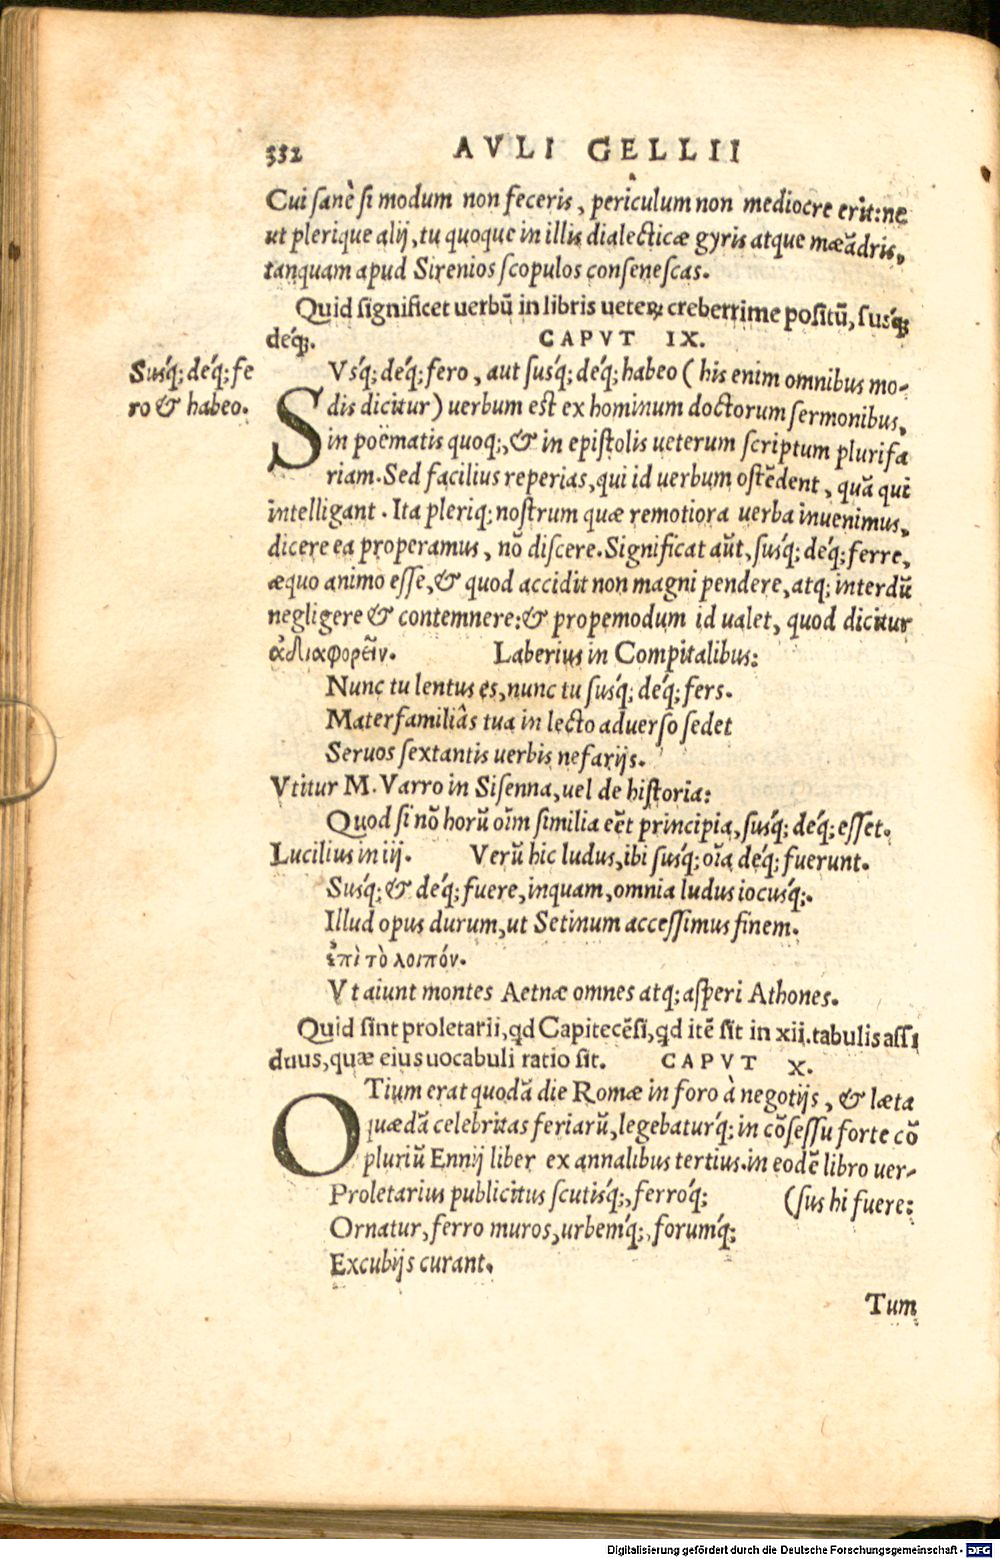 332 AVLI GELLII
Cui sanè si modum non feceris, periculum non mediocre erit: ne
ut plerique alij, tu quoque in illis dialecticæ gyris atque mæādris,
tanquam apud Sirenios scopulos consenescas.
Quid significet uerbū in libris ueterꝝ creberrime positū, susq́;
déq́;. CAPVT IX.
Susq́; déq́; fe
ro & habeo.
SVsq́; déq́; fero, aut susq́; déq́; habeo (his enim omnibus mo-
dis dicitur) uerbum est ex hominum doctorum sermonibus,
in poëmatis quoq;, & in epistolis ueterum scriptum plurifa
riam. Sed facilius reperias, qui id uerbum ostēdent, quā qui
intelligant. Ita pleriq; nostrum quæ remotiora uerba inuenimus,
dicere ea properamus, nō discere. Significat aūt, susq́; déq́; ferre,
æquo animo esse, & quod accidit non magni pendere, atq; interdū
negligere & contemnere: & propemodum id ualet, quod dicitur
ἀδιαφορεῖν. Laberius in Compitalibus:
Nunc tu lentus es, nunc tu susq́; déq́; fers.
Materfamiliâs tua in lecto aduerso sedet
Seruos sextantis uerbis nefarijs.
Vtitur M. Varro in Sisenna, uel de historia:
Quod si nō horū oīm similia eēt principia, susq́; déq́; esset.
Lucilius in iij. Verū hic ludus, ibi susq́; oīa déq́; fuerunt.
Susq́; & déq́; fuere, inquam, omnia ludus iocusq́;.
Illud opus durum, ut Setinum accessimus finem.
ἐπὶ τὸ λοιπόν.
Vt aiunt montes Aetnæ omnes atq; asperi Athones.
Quid sint proletarii, qd Capitecēsi, qd itē sit in xii. tabulis assi
duus, quæ eius uocabuli ratio sit. CAPVT X.
OTium erat quodā die Romæ in foro à negotijs, & læta
quædā celebritas feriarū, legebaturq́; in cōsessu forte cō
pluriū Ennij liber ex annalibus tertius. in eodē libro uer-
Proletarius publicitus scutisq́;, ferroq́; (sus hi fuere:
Ornatur, ferro muros, urbemq́;, forumq́;
Excubijs curant.
Tum
Digitalisierung gefördert durch die Deutsche Forschungsgemeinschaft - DFG